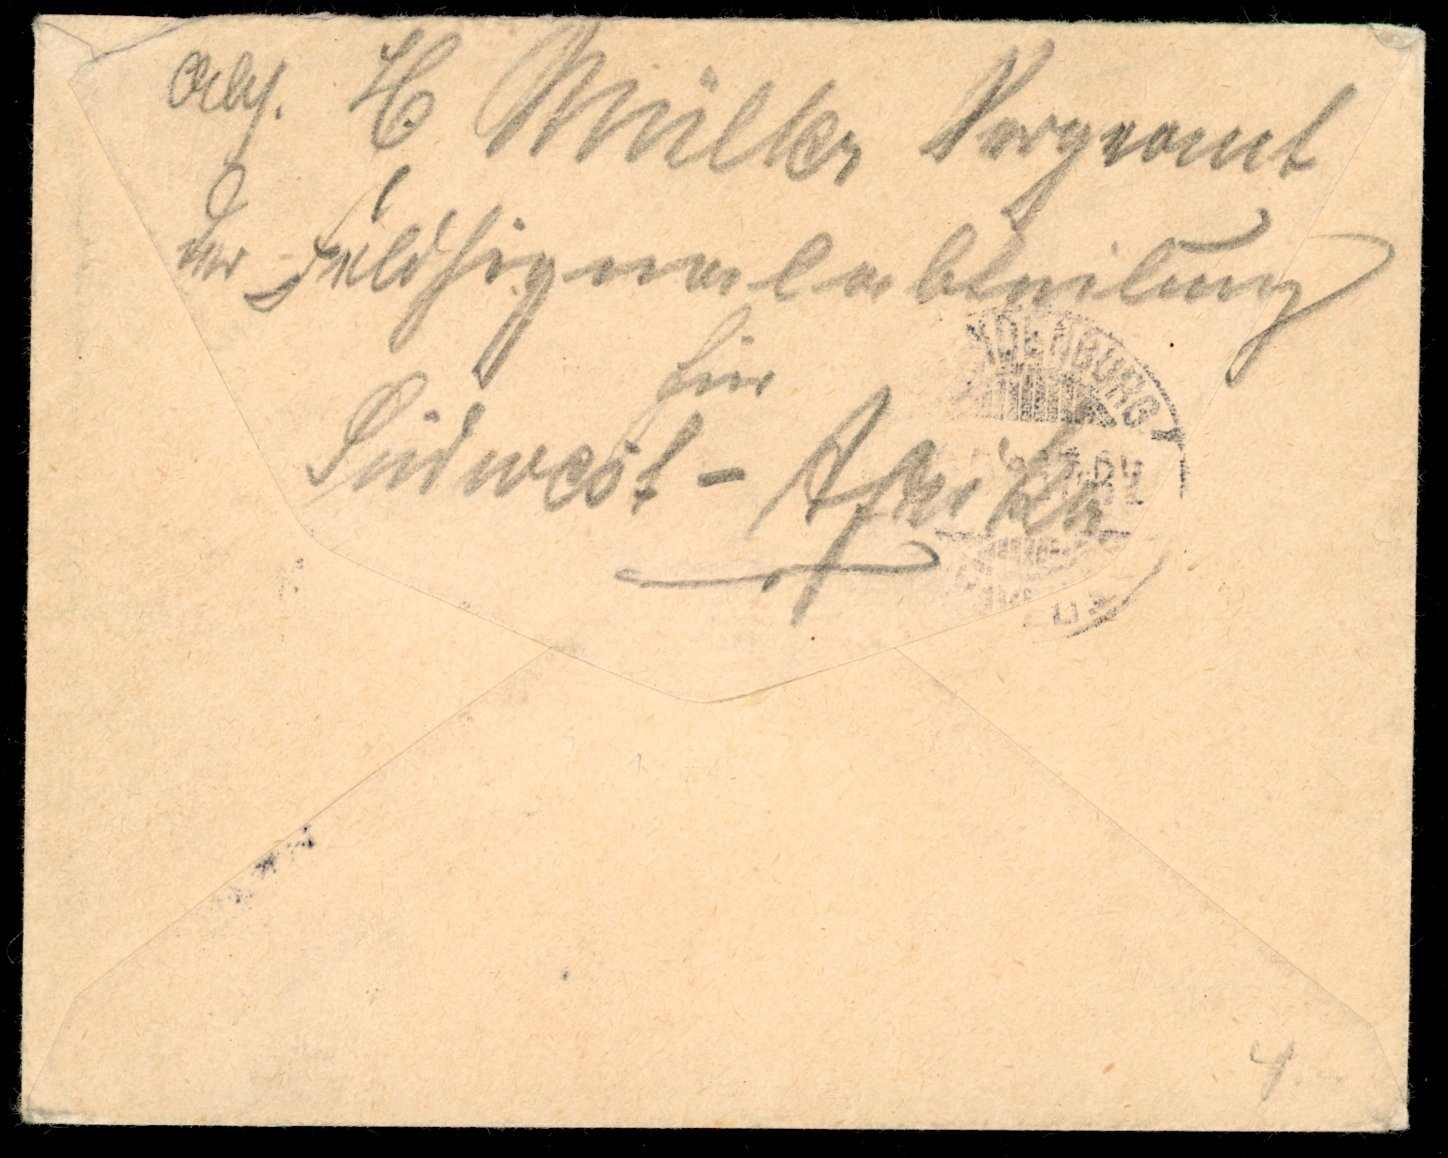 Abs. H Müller Sergeant
der Feldsignalabteilung
für
Südwest-Afrika
NDENBURG
4.-